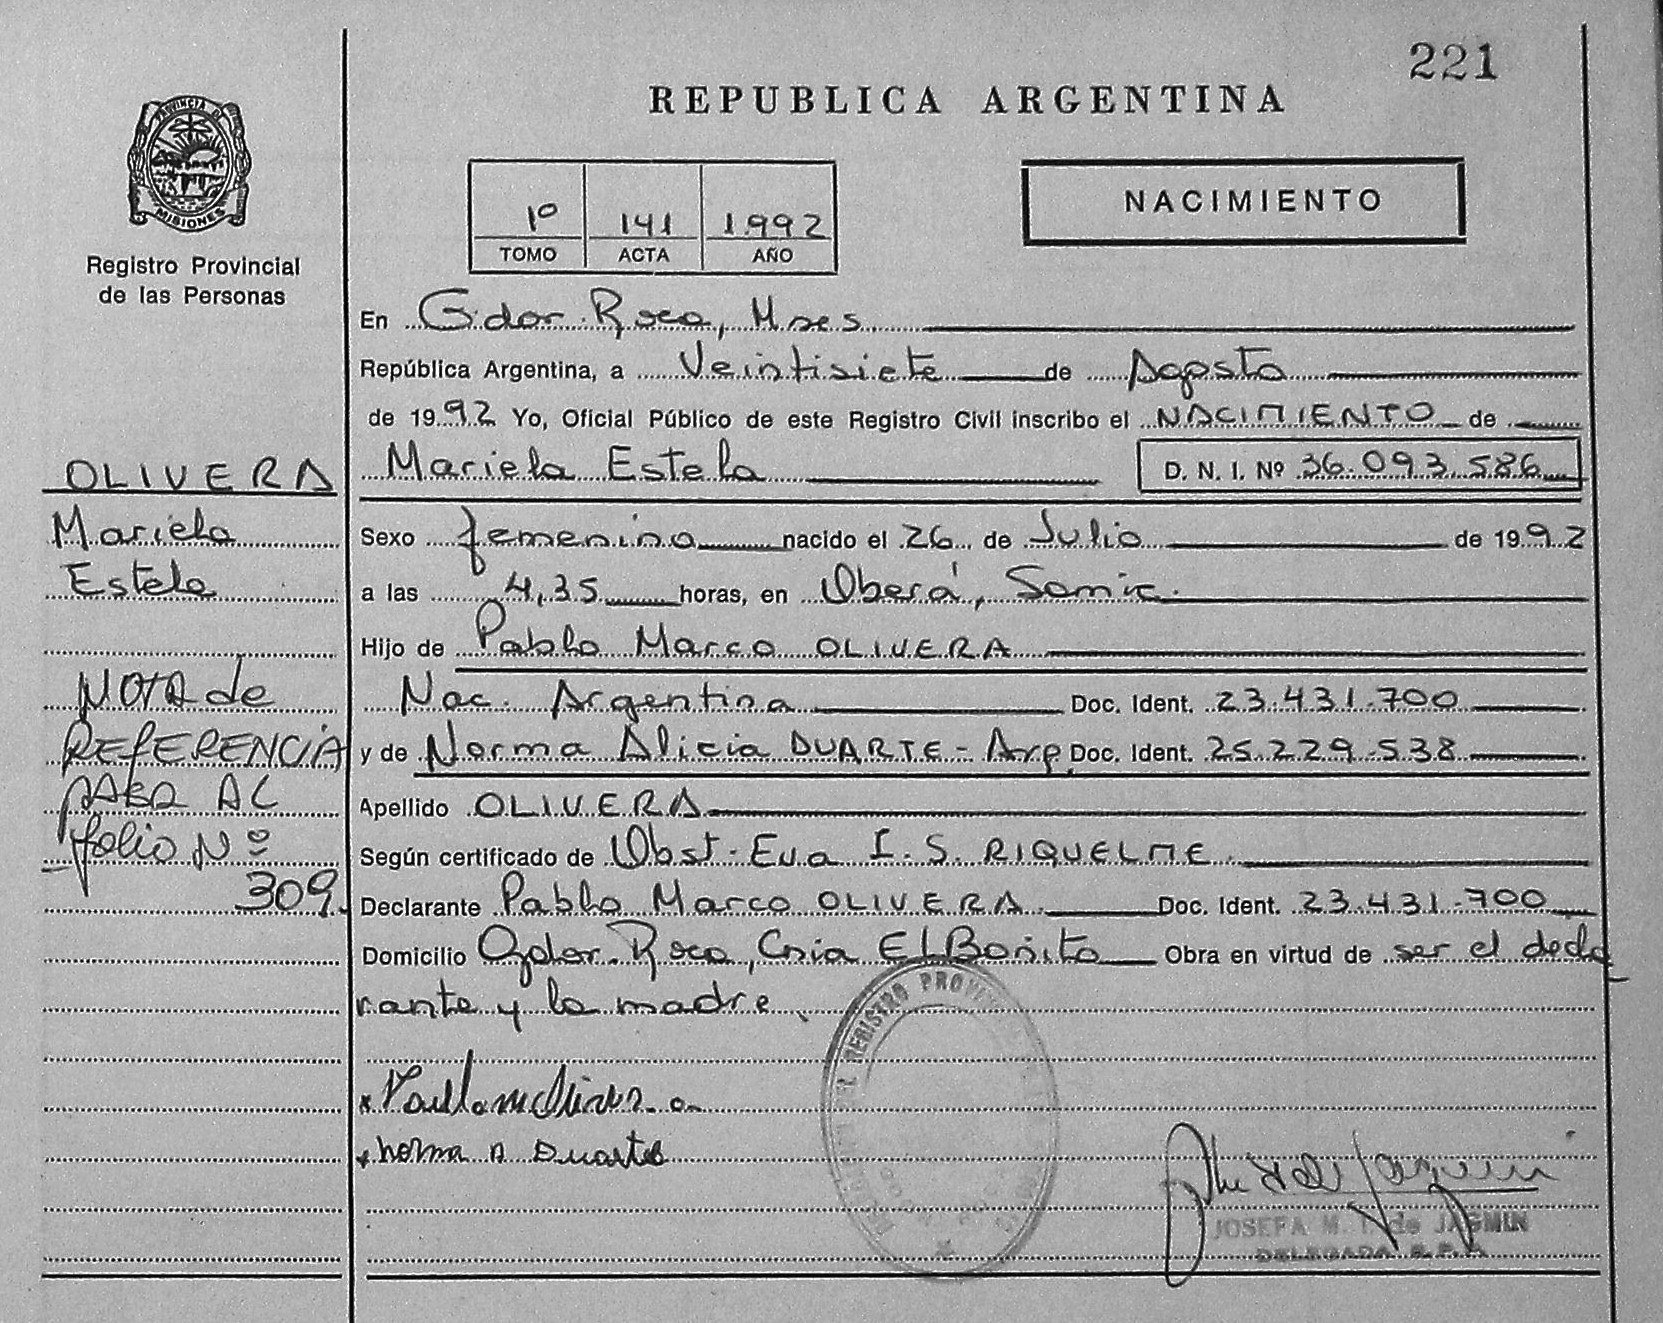 221
REPUBLICA ARGENTINA
PROVINCIA DE
MISIONES
Registro Provincial
de las Personas
1º 141 1992
TOMO ACTA AÑO
NACIMIENTO
En Gdor. Roca, Mnes
República Argentina, a Veintisiete de Agosto
de 1992 Yo, Oficial Público de este Registro Civil inscribo el NACIMIENTO de
Mariela Estela D. N. I. Nº 36.093.586
Sexo femenino nacido el 26 de Julio de 1992
a las 4,35 horas, en Oberá, Samic.
Hijo de Pablo Marco OLIVERA
Nac. Argentina Doc. Ident. 23.431.700
y de Norma Alicia DUARTE - Arg Doc. Ident. 25.229.538
Apellido OLIVERA
Según certificado de Obst. Eva I. S. RIQUELME
Declarante Pablo Marco OLIVERA Doc. Ident. 23.431.700
Domicilio Gdor. Roca, Cnia El Bonito Obra en virtud de ser el decla
rante y la madre
norma A Duarte
REGISTRO PROVINCIAL
JOSEFA M. T. de JASMIN
DELEGADA R.P.P.
OLIVERA
Mariela
Estela
NOTA de
REFERENCIA
PARA AC
folio Nº
309